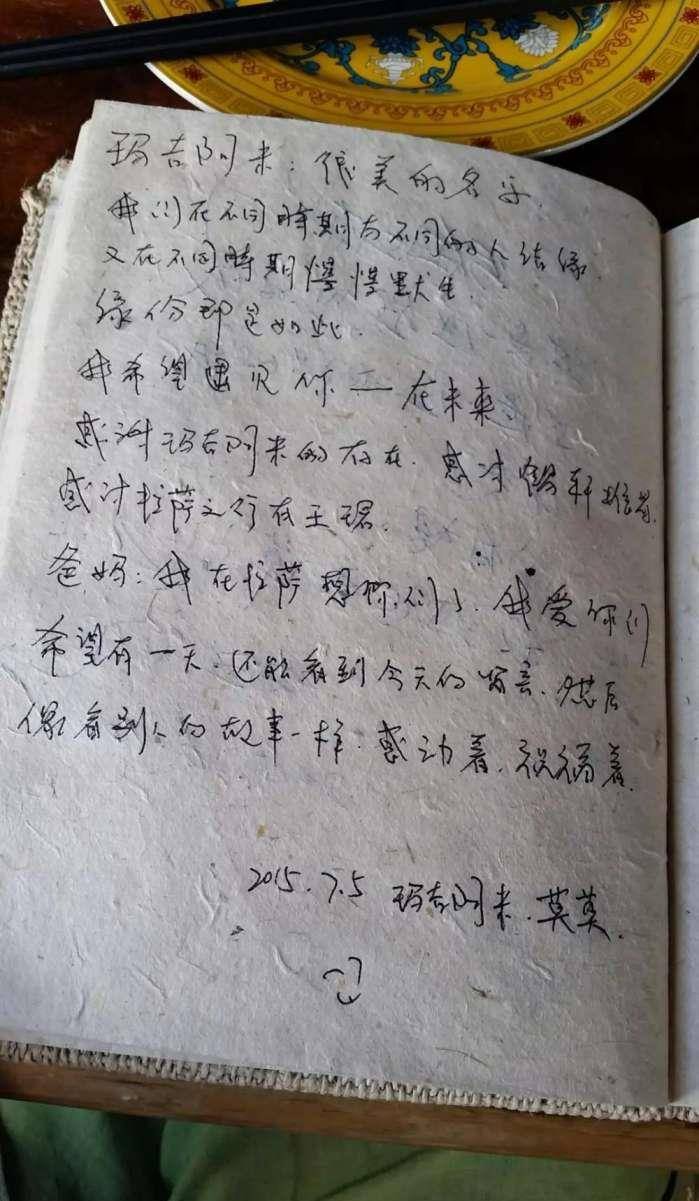 玛吉阿米：很美的名字.
我们在不同時期与不同的人结缘.
又在不同時期慢慢默生.
缘份即是如此.
我希望遇见你——在未来.
感谢玛吉阿米的存在. 感谢轩推荐.
感谢拉萨之行有王珺.
爸妈：我在拉萨想你们了. 我爱你们
希望有一天. 还能看到今天的留言. 然后
像看别人的故事一样. 感动着. 祝福着.
2015.7.5 玛吉阿米. 莫莫.